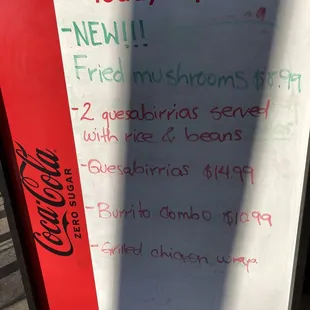 -NEW!!!
Fried mushrooms $8.99
-2 quesabirrias served
with rice & beans
-Quesabirrias $14.99
-Burrito Combo $10.99
-Grilled chicken wrap
Coca-Cola
ZERO SUGAR